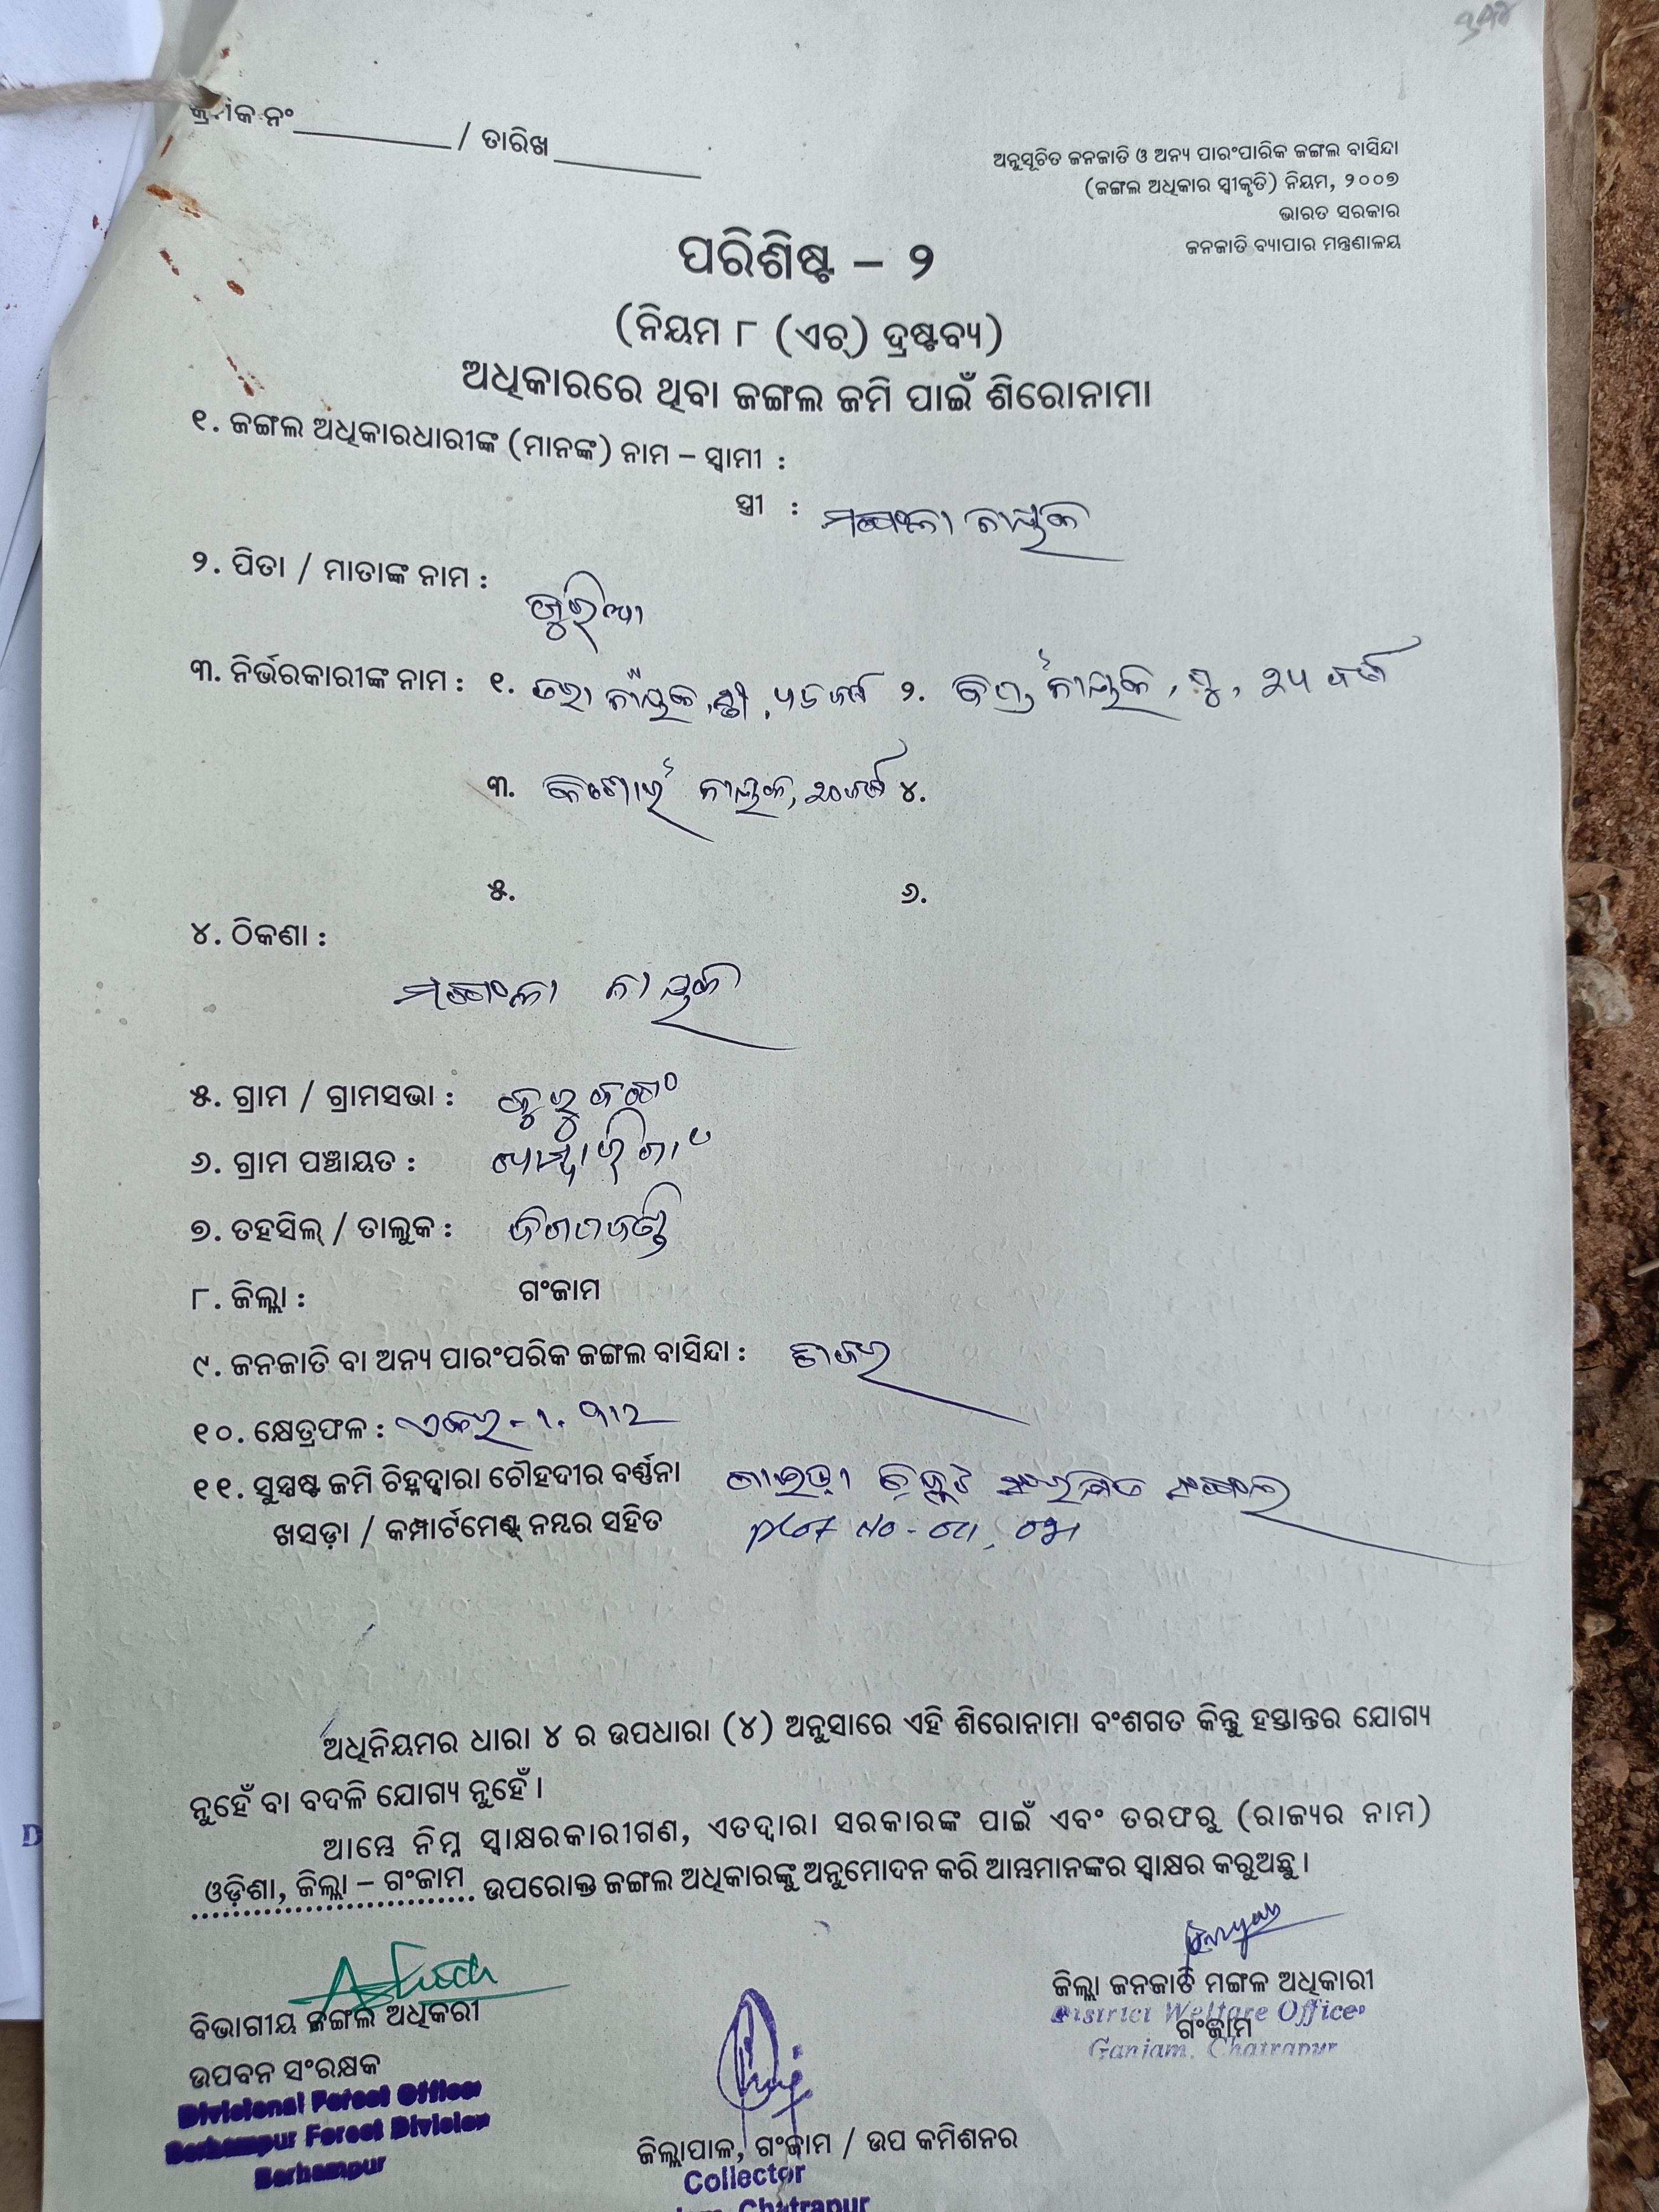 କ୍ରମିକ ନଂ / ତାରିଖ
ଅନୁସୂଚିତ ଜନଜାତି ଓ ଅନ୍ୟ ପାରଂପାରିକ ଜଙ୍ଗଲ ବାସିନ୍ଦା
(ଜଙ୍ଗଲ ଅଧିକାର ସ୍ୱୀକୃତି) ନିୟମ, ୨୦୦୭
ଭାରତ ସରକାର
ଜନଜାତି ବ୍ୟାପାର ମନ୍ତ୍ରଣାଳୟ
ପରିଶିଷ୍ଟ – ୨
(ନିୟମ ୮ (ଏଚ୍) ଦ୍ରଷ୍ଟବ୍ୟ)
ଅଧିକାରରେ ଥିବା ଜଙ୍ଗଲ ଜମି ପାଇଁ ଶିରୋନାମା
୧. ଜଙ୍ଗଲ ଅଧିକାରଧାରୀଙ୍କ (ମାନଙ୍କ) ନାମ – ସ୍ୱାମୀ :
ସ୍ତ୍ରୀ : ନାୟକ
୨. ପିତା / ମାତାଙ୍କ ନାମ :
୩. ନିର୍ଭରକାରୀଙ୍କ ନାମ : ୧. ନାୟକ, ସ୍ତ୍ରୀ, ୨. ନାୟକ, ପୁ, ୨୫ ବର୍ଷ
୩. ନାୟକ, ୨୦ବର୍ଷ ୪.
୫. ୬.
୪. ଠିକଣା :
ନାୟକ
୫. ଗ୍ରାମ / ଗ୍ରାମସଭା :
୬. ଗ୍ରାମ ପଞ୍ଚାୟତ :
୭. ତହସିଲ୍ / ତାଲୁକ : ଦିଗପହଣ୍ଡି
୮. ଜିଲ୍ଲା : ଗଂଜାମ
୯. ଜନଜାତି ବା ଅନ୍ୟ ପାରଂପରିକ ଜଙ୍ଗଲ ବାସିନ୍ଦା : ଶବର
୧୦. କ୍ଷେତ୍ରଫଳ : ଏକର -
୧୧. ସୁସ୍ପଷ୍ଟ ଜମି ଚିହ୍ନଦ୍ୱାରା ଚୌହଦୀର ବର୍ଣ୍ଣନା ସଂରକ୍ଷିତ ଜଂଗଲ
ଖସଡ଼ା / କମ୍ପାର୍ଟମେଣ୍ଟ୍ ନମ୍ବର ସହିତ Plot No -
ଅଧିନିୟମର ଧାରା ୪ ର ଉପଧାରା (୪) ଅନୁସାରେ ଏହି ଶିରୋନାମା ବଂଶଗତ କିନ୍ତୁ ହସ୍ତାନ୍ତର ଯୋଗ୍ୟ
ନୁହେଁ ବା ବଦଳି ଯୋଗ୍ୟ ନୁହେଁ ।
ଆମ୍ଭେ ନିମ୍ନ ସ୍ୱାକ୍ଷରକାରୀଗଣ, ଏତଦ୍ୱାରା ସରକାରଙ୍କ ପାଇଁ ଏବଂ ତରଫରୁ (ରାଜ୍ୟର ନାମ)
ଓଡ଼ିଶା, ଜିଲ୍ଲା – ଗଂଜାମ ଉପରୋକ୍ତ ଜଙ୍ଗଲ ଅଧିକାରଙ୍କୁ ଅନୁମୋଦନ କରି ଆମ୍ଭମାନଙ୍କର ସ୍ୱାକ୍ଷର କରୁଅଛୁ ।
ଜିଲ୍ଲା ଜନଜାତି ମଙ୍ଗଳ ଅଧିକାରୀ
District Welfare Officer
ଗଂଜାମ
Ganjam, Chatrapur
ବିଭାଗୀୟ ଜଙ୍ଗଲ ଅଧିକରୀ
ଉପବନ ସଂରକ୍ଷକ
Divisional Forest Officer
Berhampur Forest Division
Berhampur
ଜିଲ୍ଲାପାଳ, ଗଂଜାମ / ଉପ କମିଶନର
Collector
Chatrapur